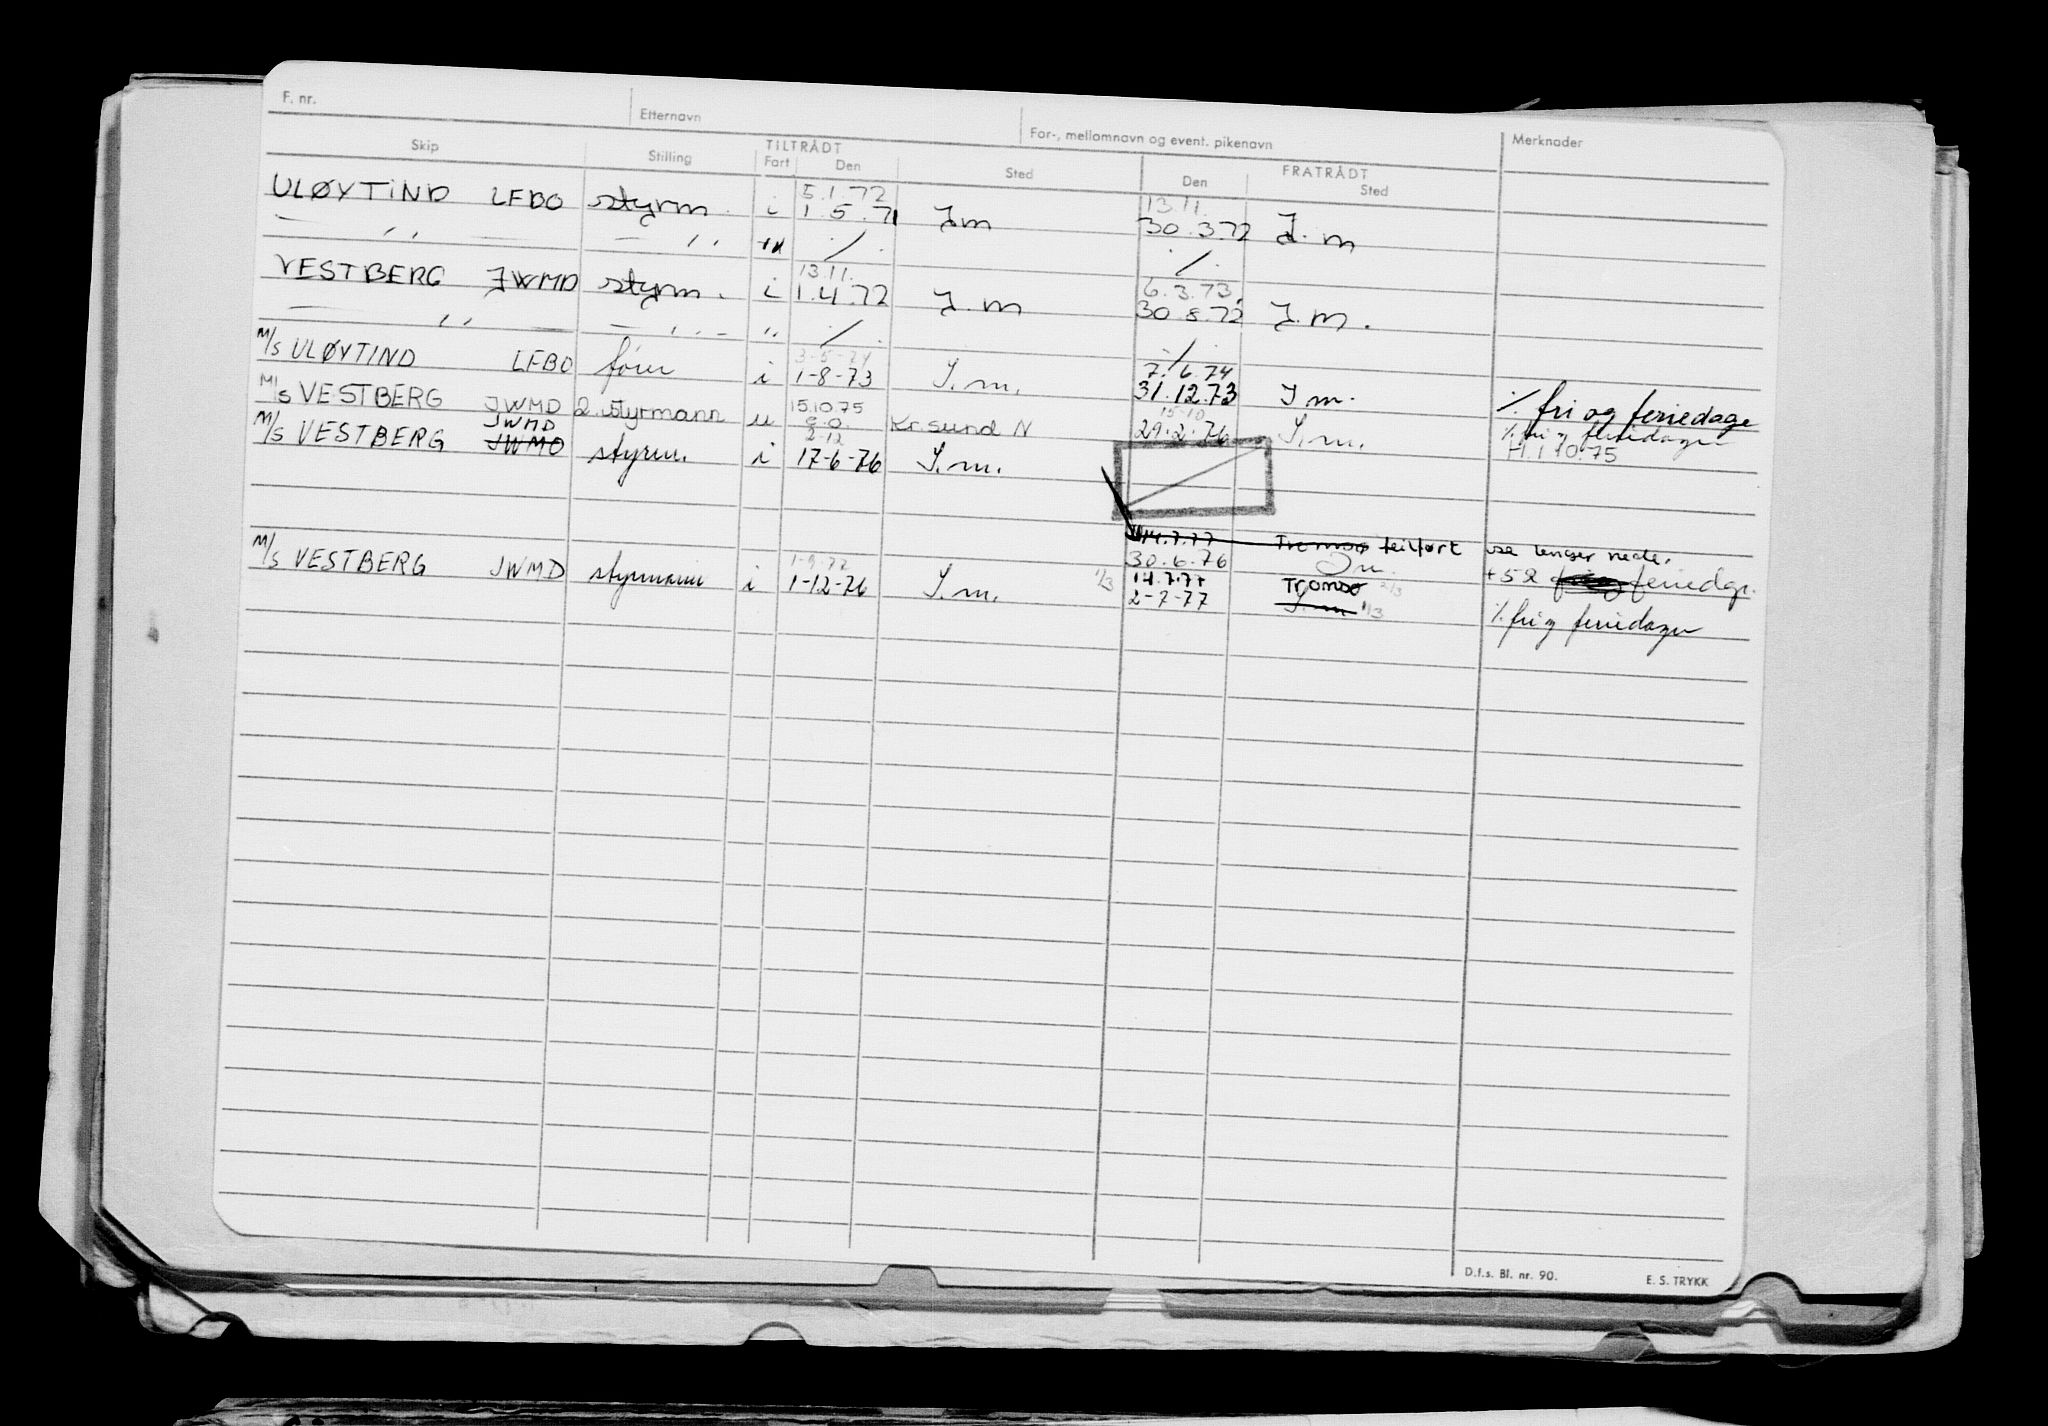 F. nr. Etternavn For-, mellomnavn og event. pikenavn Merknader
Skip Stilling TILTRÅDT Fart Den Sted FRATRÅDT Den Sted
5.1.72 13.11.
ULØYTIND LFBO styrm. i 1.5.71 I m 30.3.72 I. m
— ,, — — ,, ./. ./.
13.11. 6.3.73
VESTBERG JWMD styrm. i 1.4.72 I. m 30.8.72 I. m.
— ,, — — ,, — ,, ./. ./.
3-5-74 7.6.74
M/S ULØYTIND LFBO fører i 1-8-73 I. m. 31.12.73 I m. % fri og feriedage
15.10.75 15-10
M/S VESTBERG JWMD 2. styrmann u Kr.sund N 29.2.76 I. m. % fri og feriedager
JWMD 2-12 1.10.75
M/S VESTBERG JWMO styrm. i 17-6-76 I. m.
14.7.77 Tromsø feilført se lenger nede.
1-9-77 30.6.76 Im. +52 feriedgr.
M/S VESTBERG JWMD styrmann i 1-12-76 I. m. 1/3 14.7.77 Tromsø 2/3
2-7-77 I. m 1/3 % fri og feriedager
D.f.s. Bl. nr. 90. E. S. TRYKK